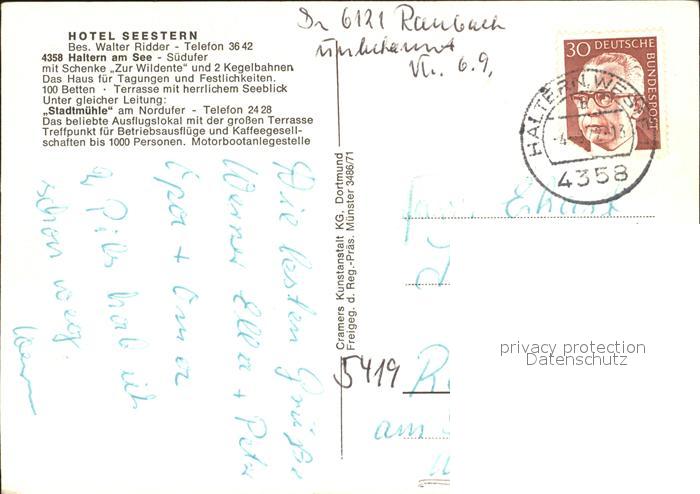 HOTEL SEESTERN
Bes. Walter Ridder - Telefon 36 42
4358 Haltern am See - Südufer
mit Schenke „Zur Wildente" und 2 Kegelbahnen
Das Haus für Tagungen und Festlichkeiten.
100 Betten · Terrasse mit herrlichem Seeblick
Unter gleicher Leitung:
„Stadtmühle" am Nordufer - Telefon 24 28
Das beliebte Ausflugslokal mit der großen Terrasse
Treffpunkt für Betriebsausflüge und Kaffeegesell-
schaften bis 1000 Personen. Motorbootanlegestelle
In 6121 Raubach
unbekannt
6.9.
30 DEUTSCHE
BUNDESPOST
HALTERN, WESTF
4358
Cramers Kunstanstalt KG. Dortmund
Freigeg. d. Reg.-Präs. Münster 3486/71
Die besten Grüße
Werner Ella + Peter
Opa + Oma
2 Pils hab ich
schon weg.
5419
am
privacy protection
Datenschutz